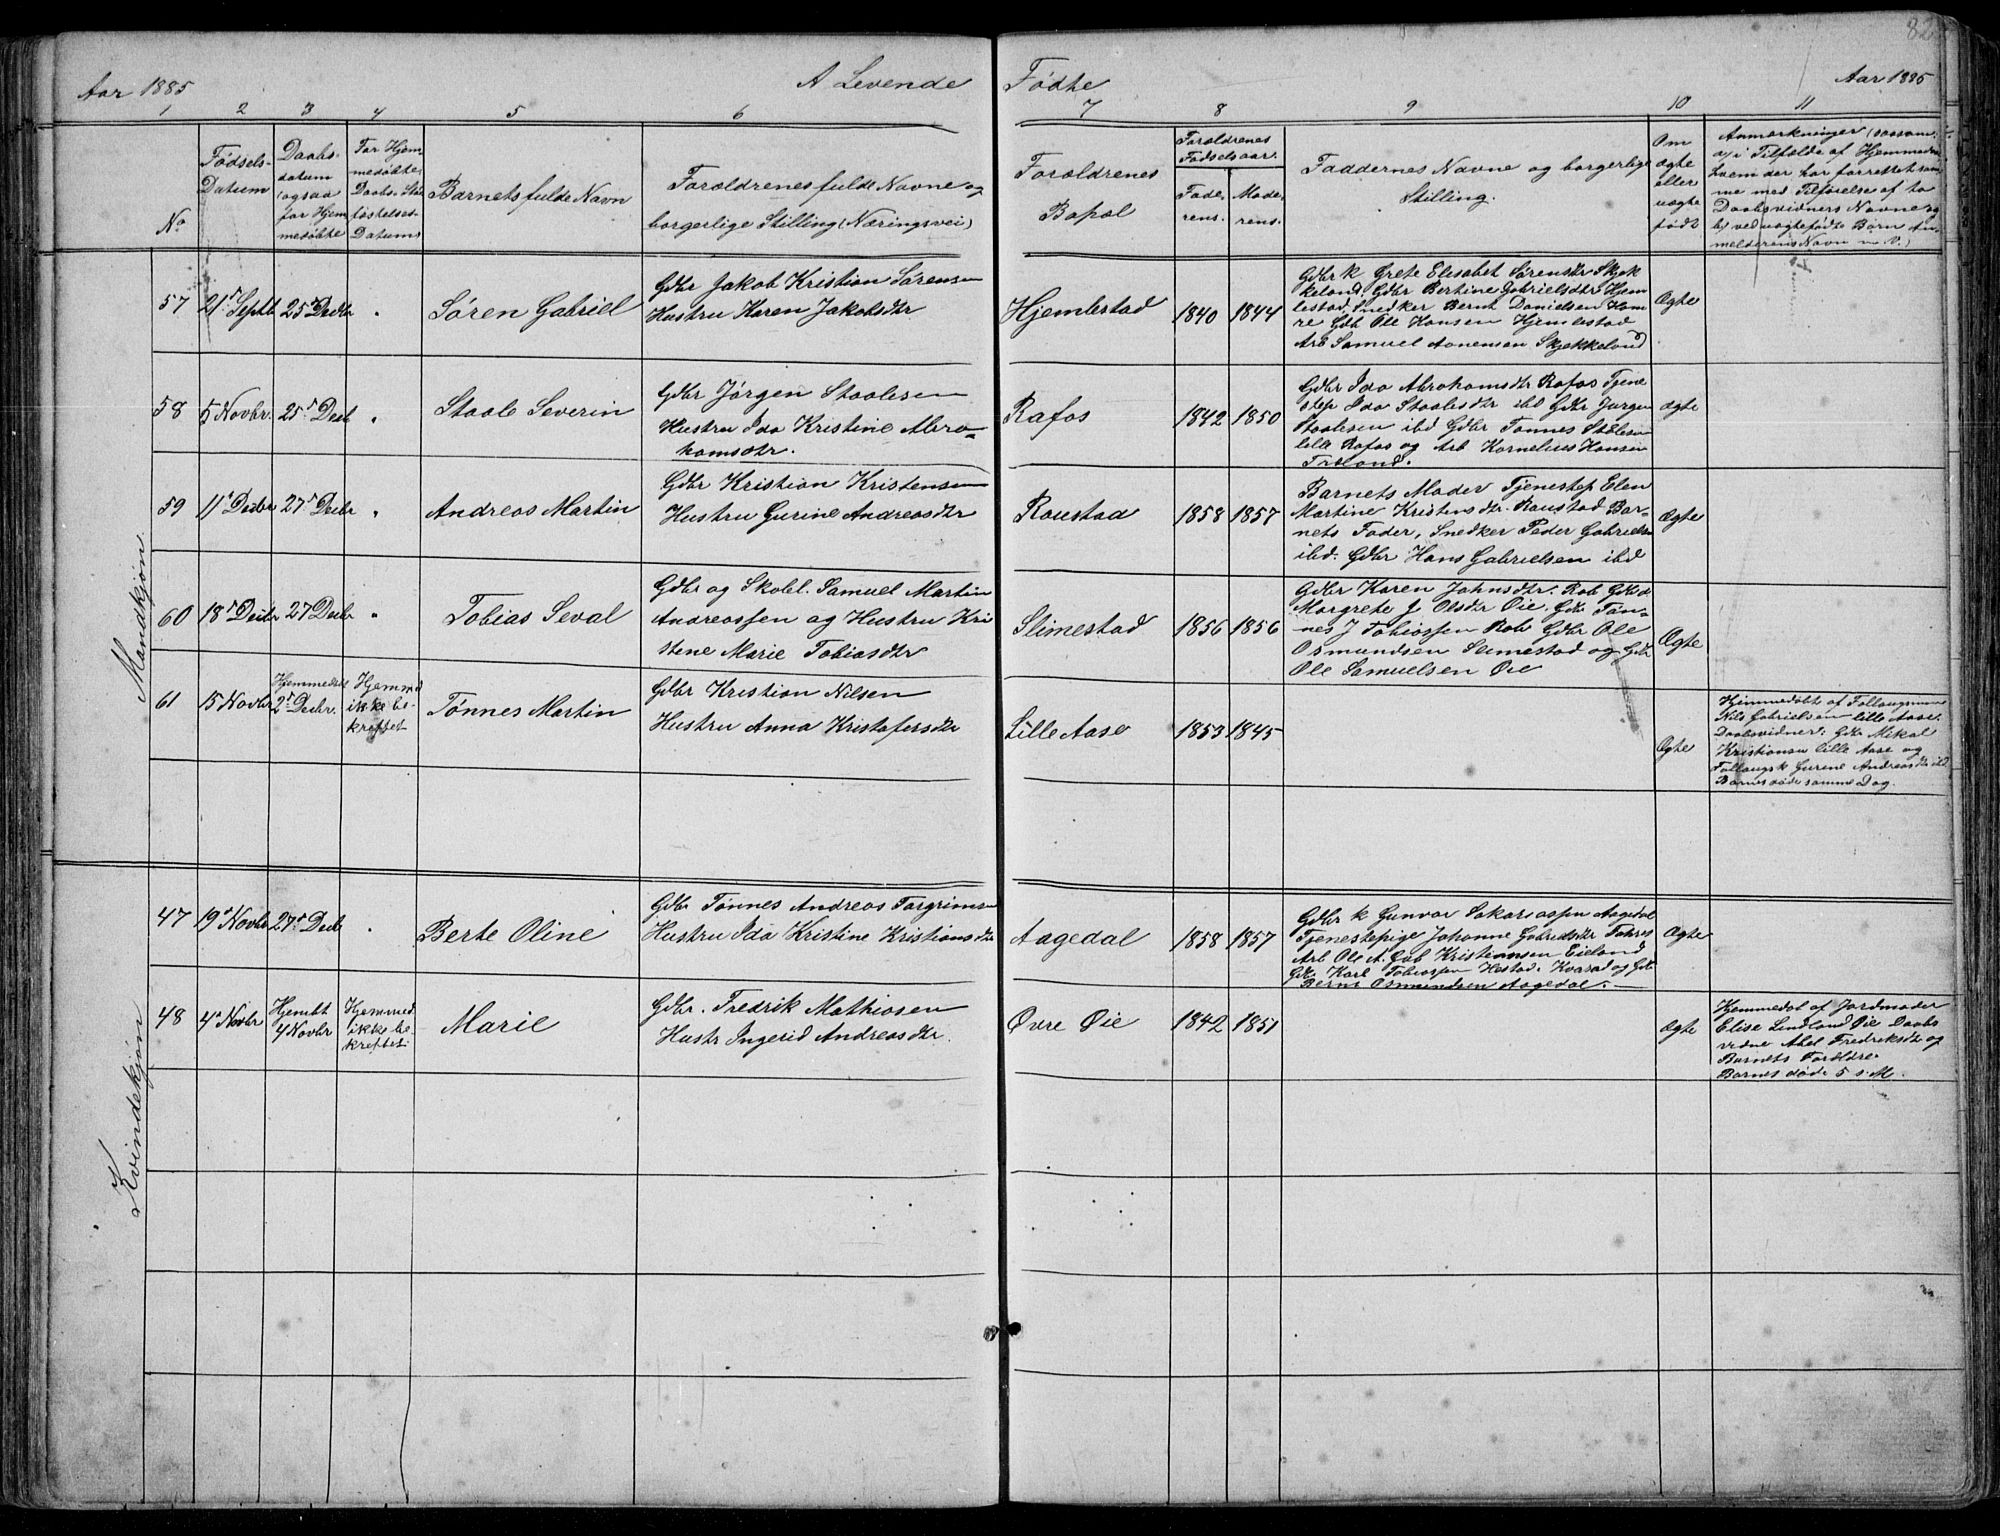 82
Aar 1885
A Levende
Fødte
Aar 1885
1 2 3 4 5 6 7 8 9 10 11
No
Fødsels-
Datum
Daabs-
datum
(ogsaa
for Hjem-
medøbte
For Hjem-
medøbte,
Daabs. Stad
fæstelses-
Datums
Barnets fulde Navn
Forældrenes fulde Navne og
borgerlige Stilling (Næringsvei)
Forældrenes
Bopæl
Forældrenes
Fødselsaar.
Fade-
rens.
Mode-
rens.
Faddernes Navne og borgerlige
Stilling.
Om
ægte
eller
uægte
født
Anmærkninger (saasom:
a) i Tilfælde af Hjemmedaab
hvem der har forrettet sam-
me med Tilførelse af to
Daabsvidners Navne og
b) ved uægtefødte Børn An-
melderens Navn m. V.)
Mandkjøn.
57 21 Septb 25 Decbr " Søren Gabriel
Gdbr Jakob Kristian Sørensen
Hustru Karen Jakobsdtr
Hjemlestad 1840 1844
Gdbr k Grete Elisabet Sørensdtr Skjek
keland Gdbr Bertine Gabrielsdtr Hjem
lestad, Snedker Bernt Danielsen Hom
re Gdb Ole Hansen Hjemlestad
Arb Samuel Aanensen Skjekkeland
Ægte
58 5 Novbr. 25 Decb " Staale Severin
Gdbr Jørgen Staalesen
Hustru Ida Kristine Abra-
hamsdtr.
Rafos 1842 1850
Gdbr Ida Abrahamsdtr Rafos Tjene
step Ida Staalesdtr ibd Gdbr Jørgen
Staalesen ibd Gdbr Tønnes Stålesen
lille Rafos og Arb Kornelius Hansen
Træland.
ægte
59 11 Decbr 27 Decbr " Andreas Martin
Gdbr Kristian Kristensen
Hustru Gurine Andreasdtr
Raustad 1858 1857
Barnets Moder Tjenestep Elen
Martine Kristensdtr. Raustad Bar-
nets Fader, Snedker Peder Gabrielsen
ibd. Gdbr Hans Gabrielsen ibd
Ægte
60 18 Decbr 27 Decbr " Tobias Seval
Gdbr og Skolel. Samuel Martin
Andreassen og Hustru Kri
stene Marie Tobiasdtr
Slimestad 1856 1856
Gdbr Karen Johnsdtr. Rob Gdbr
Margrete J Olsdtr Øie. Gdbr Tøn-
nes J Tobiassen Rob Gdbr Ole
Osmundsen Slimestad og Gdbr
Ole Samuelsen Øie
Ægte
61 15 Novbr Hjemmedøbt
2 Decbr.
Hjemmed
ikke be-
kræftet
Tønnes Martin
Gdbr Kristian Nilsen
Hustru Anna Kristofersdtr
Lille Aase 1853 1845
Ægte
Hjemmedøbt af Follaugsmand
Nils Gabrielsen lille Aase.
Daabsvidner: Gdbr Mikal
Kristiansen lille Aase og
Follaugsk Gurine Andreasdtr ibd
Barnet døde samme Dag.
Kvindekjøn
47 19 Novbr 27 Decb " Berte Oline
Gdbr Tønnes Andreas Torgrimsen
Hustru Ida Kristine Kristiansdtr
Aagedal 1858 1857
Gdbr k Gunvor Sakariasen Aagedal
Tjenestepige Johanne Gabrielsdtr
Arb Ole A. Gdb Kristiansen Eieland
Gdbr Karl Tobiassen Hestad. Kvarad og Gdbr
Bernt Osmundsen Aagedal.
Ægte
48 4 Novbr Hjemdbt
4 Novbr
Hjemmed
ikke be
kræftet
Marie
Gdbr. Fredrik Mathiasen
Hustr Ingerid Andreasdtr.
Øvre Øie 1842 1851
Ægte
Hjemmedøbt af Jordmoder
Elise Lindland Øie Daabs
vidne Abel Fredriksdtr og
Barnets Forældre
Barnet døde 5 s. M.